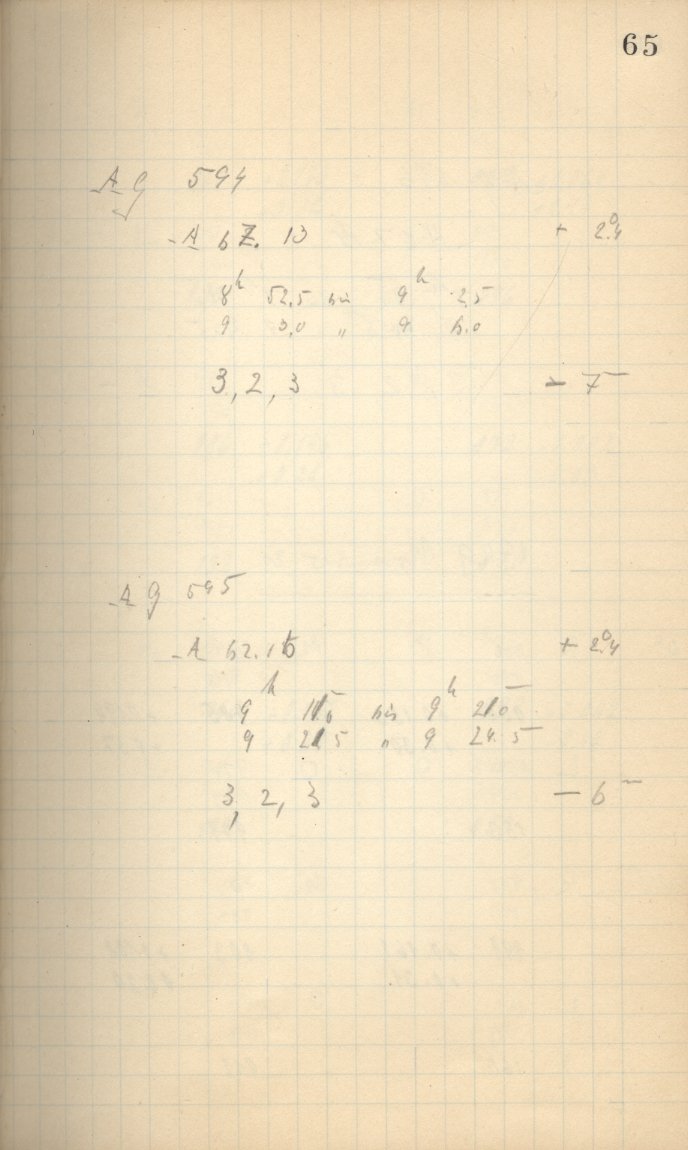 65
AG 594
A 62.13 + 2°.4
8h 52,5 bis 9h 2,5
9 3,0 „ 9 6.0
3, 2, 3 - 7
AG 595
A 62.15 + 2°.4
9h 11,0 bis 9h 21.0
9 21 5 „ 9 24. 5
3, 2, 3 - 6